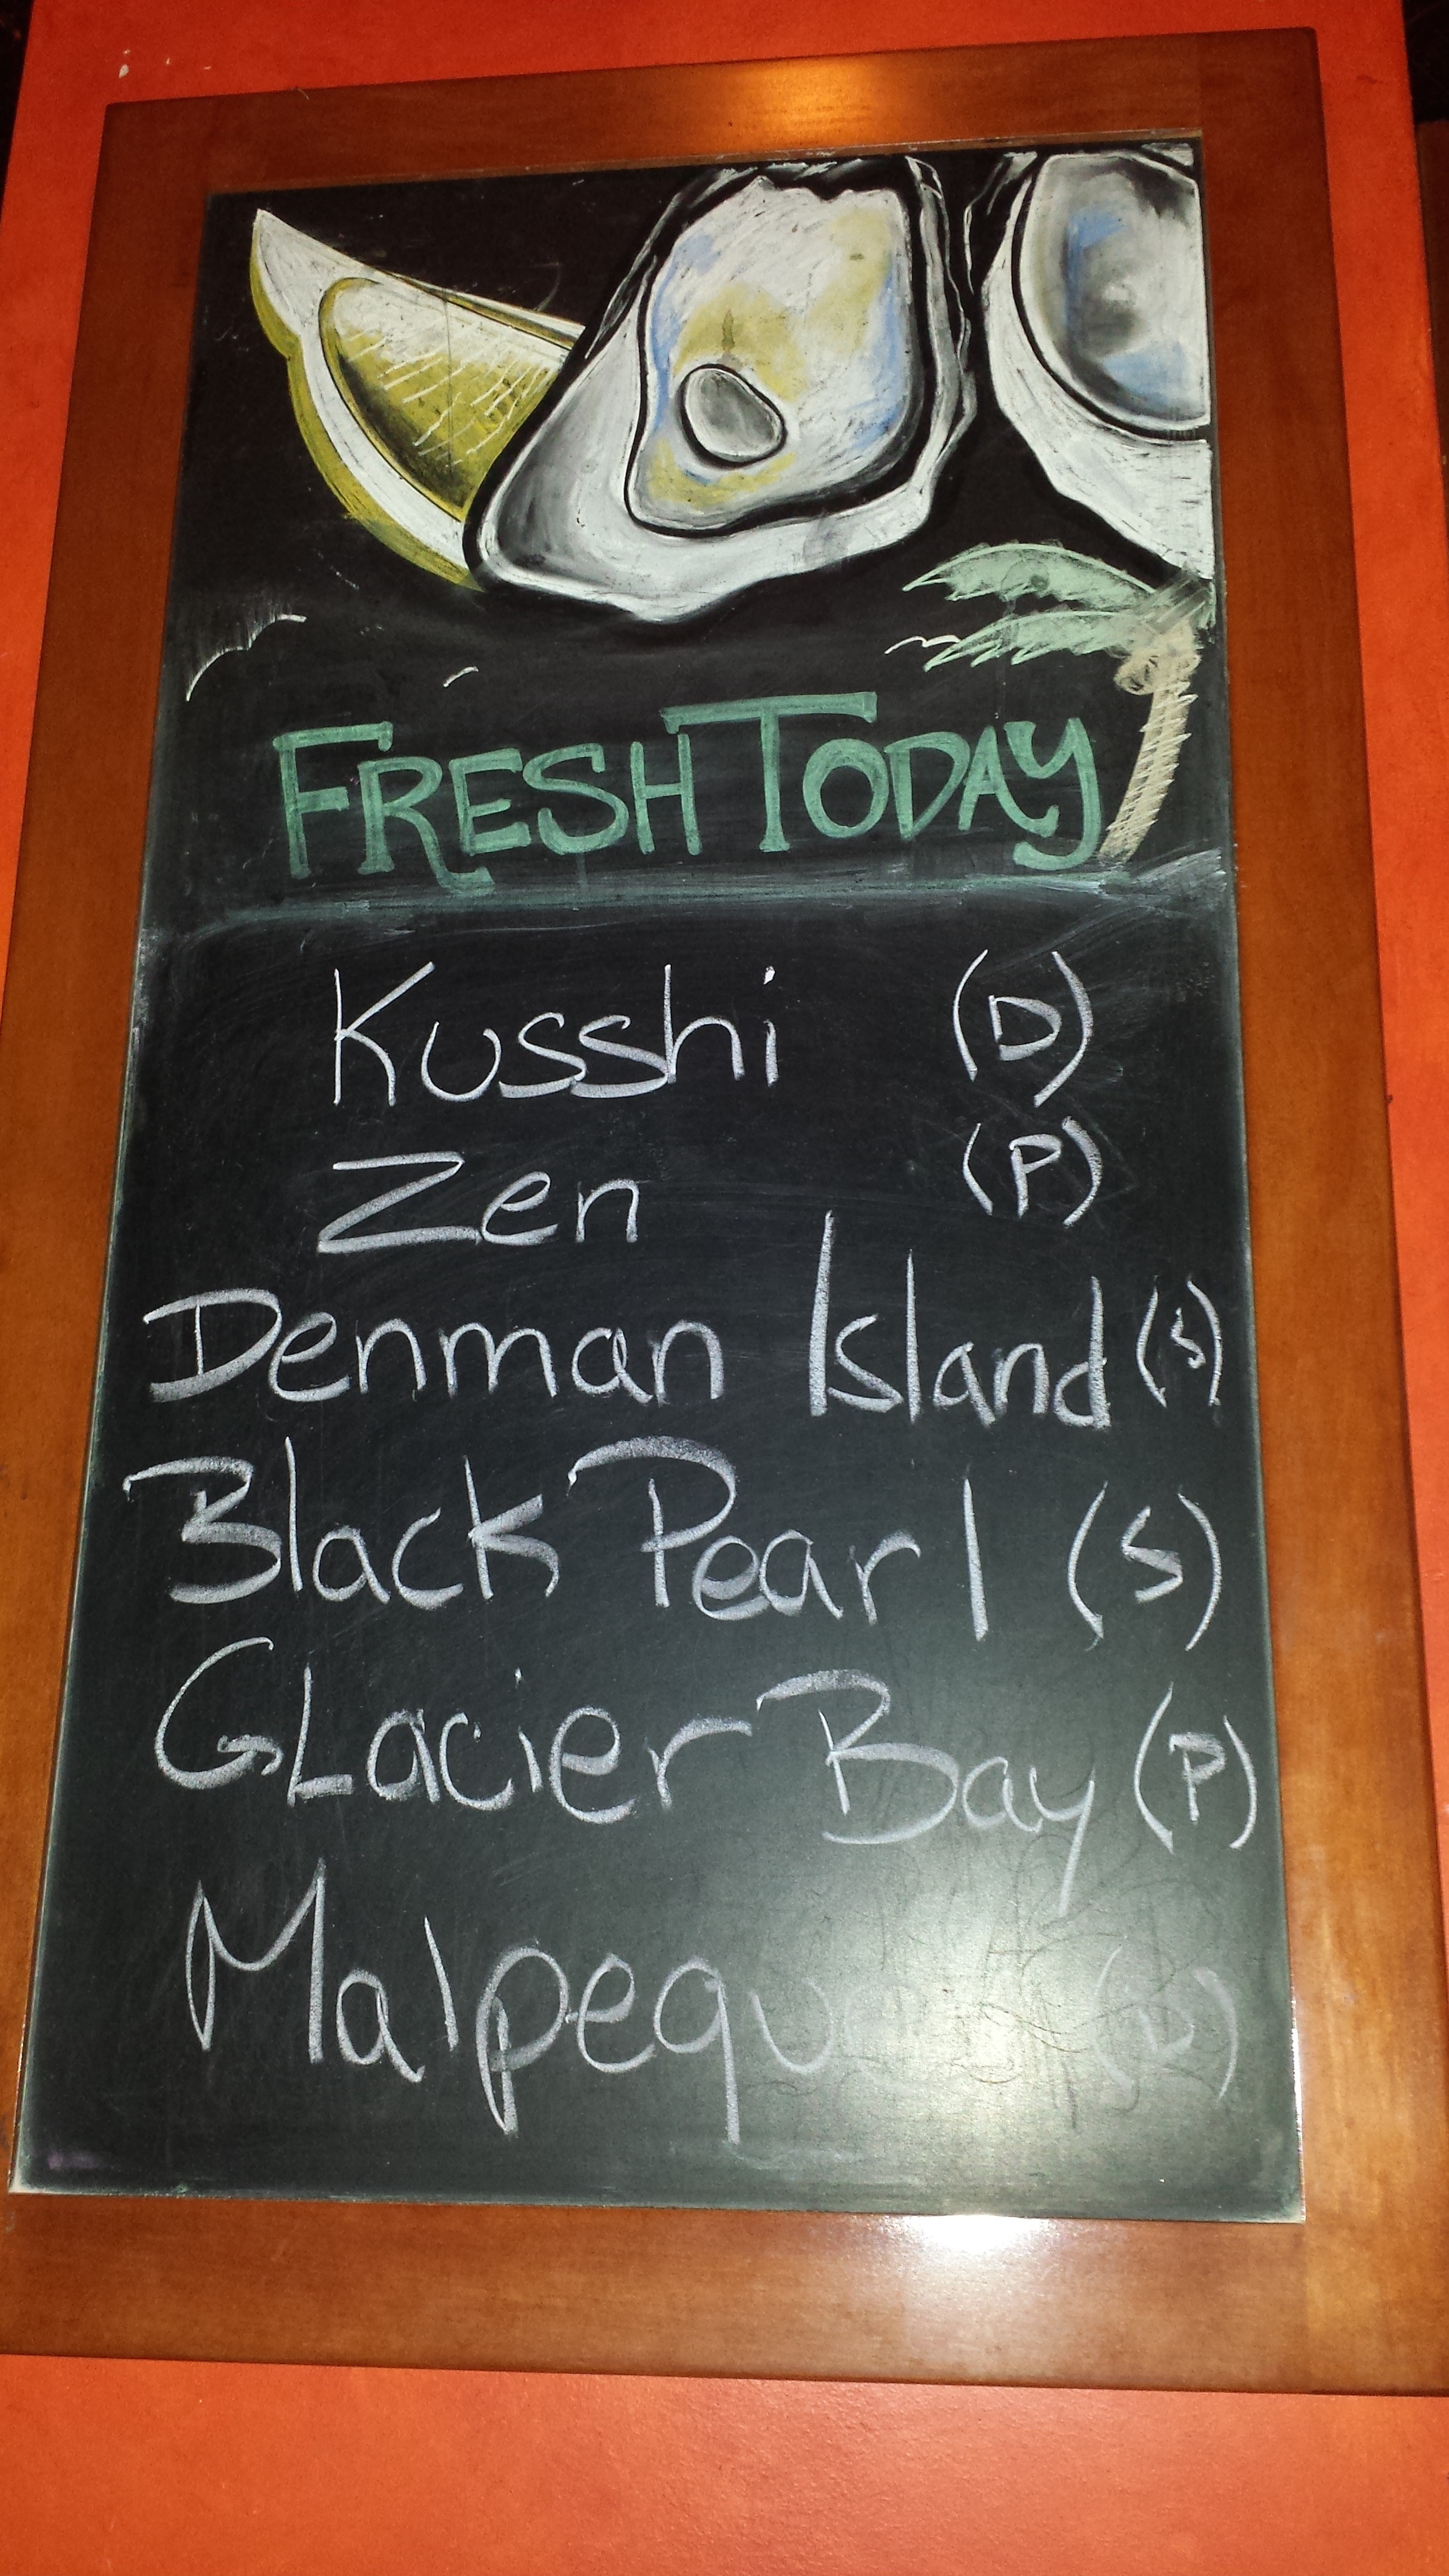 FRESH TODAY
Kusshi (D)
Zen (P)
Denman Island (S)
Black Pearl (S)
GLacier Bay (P)